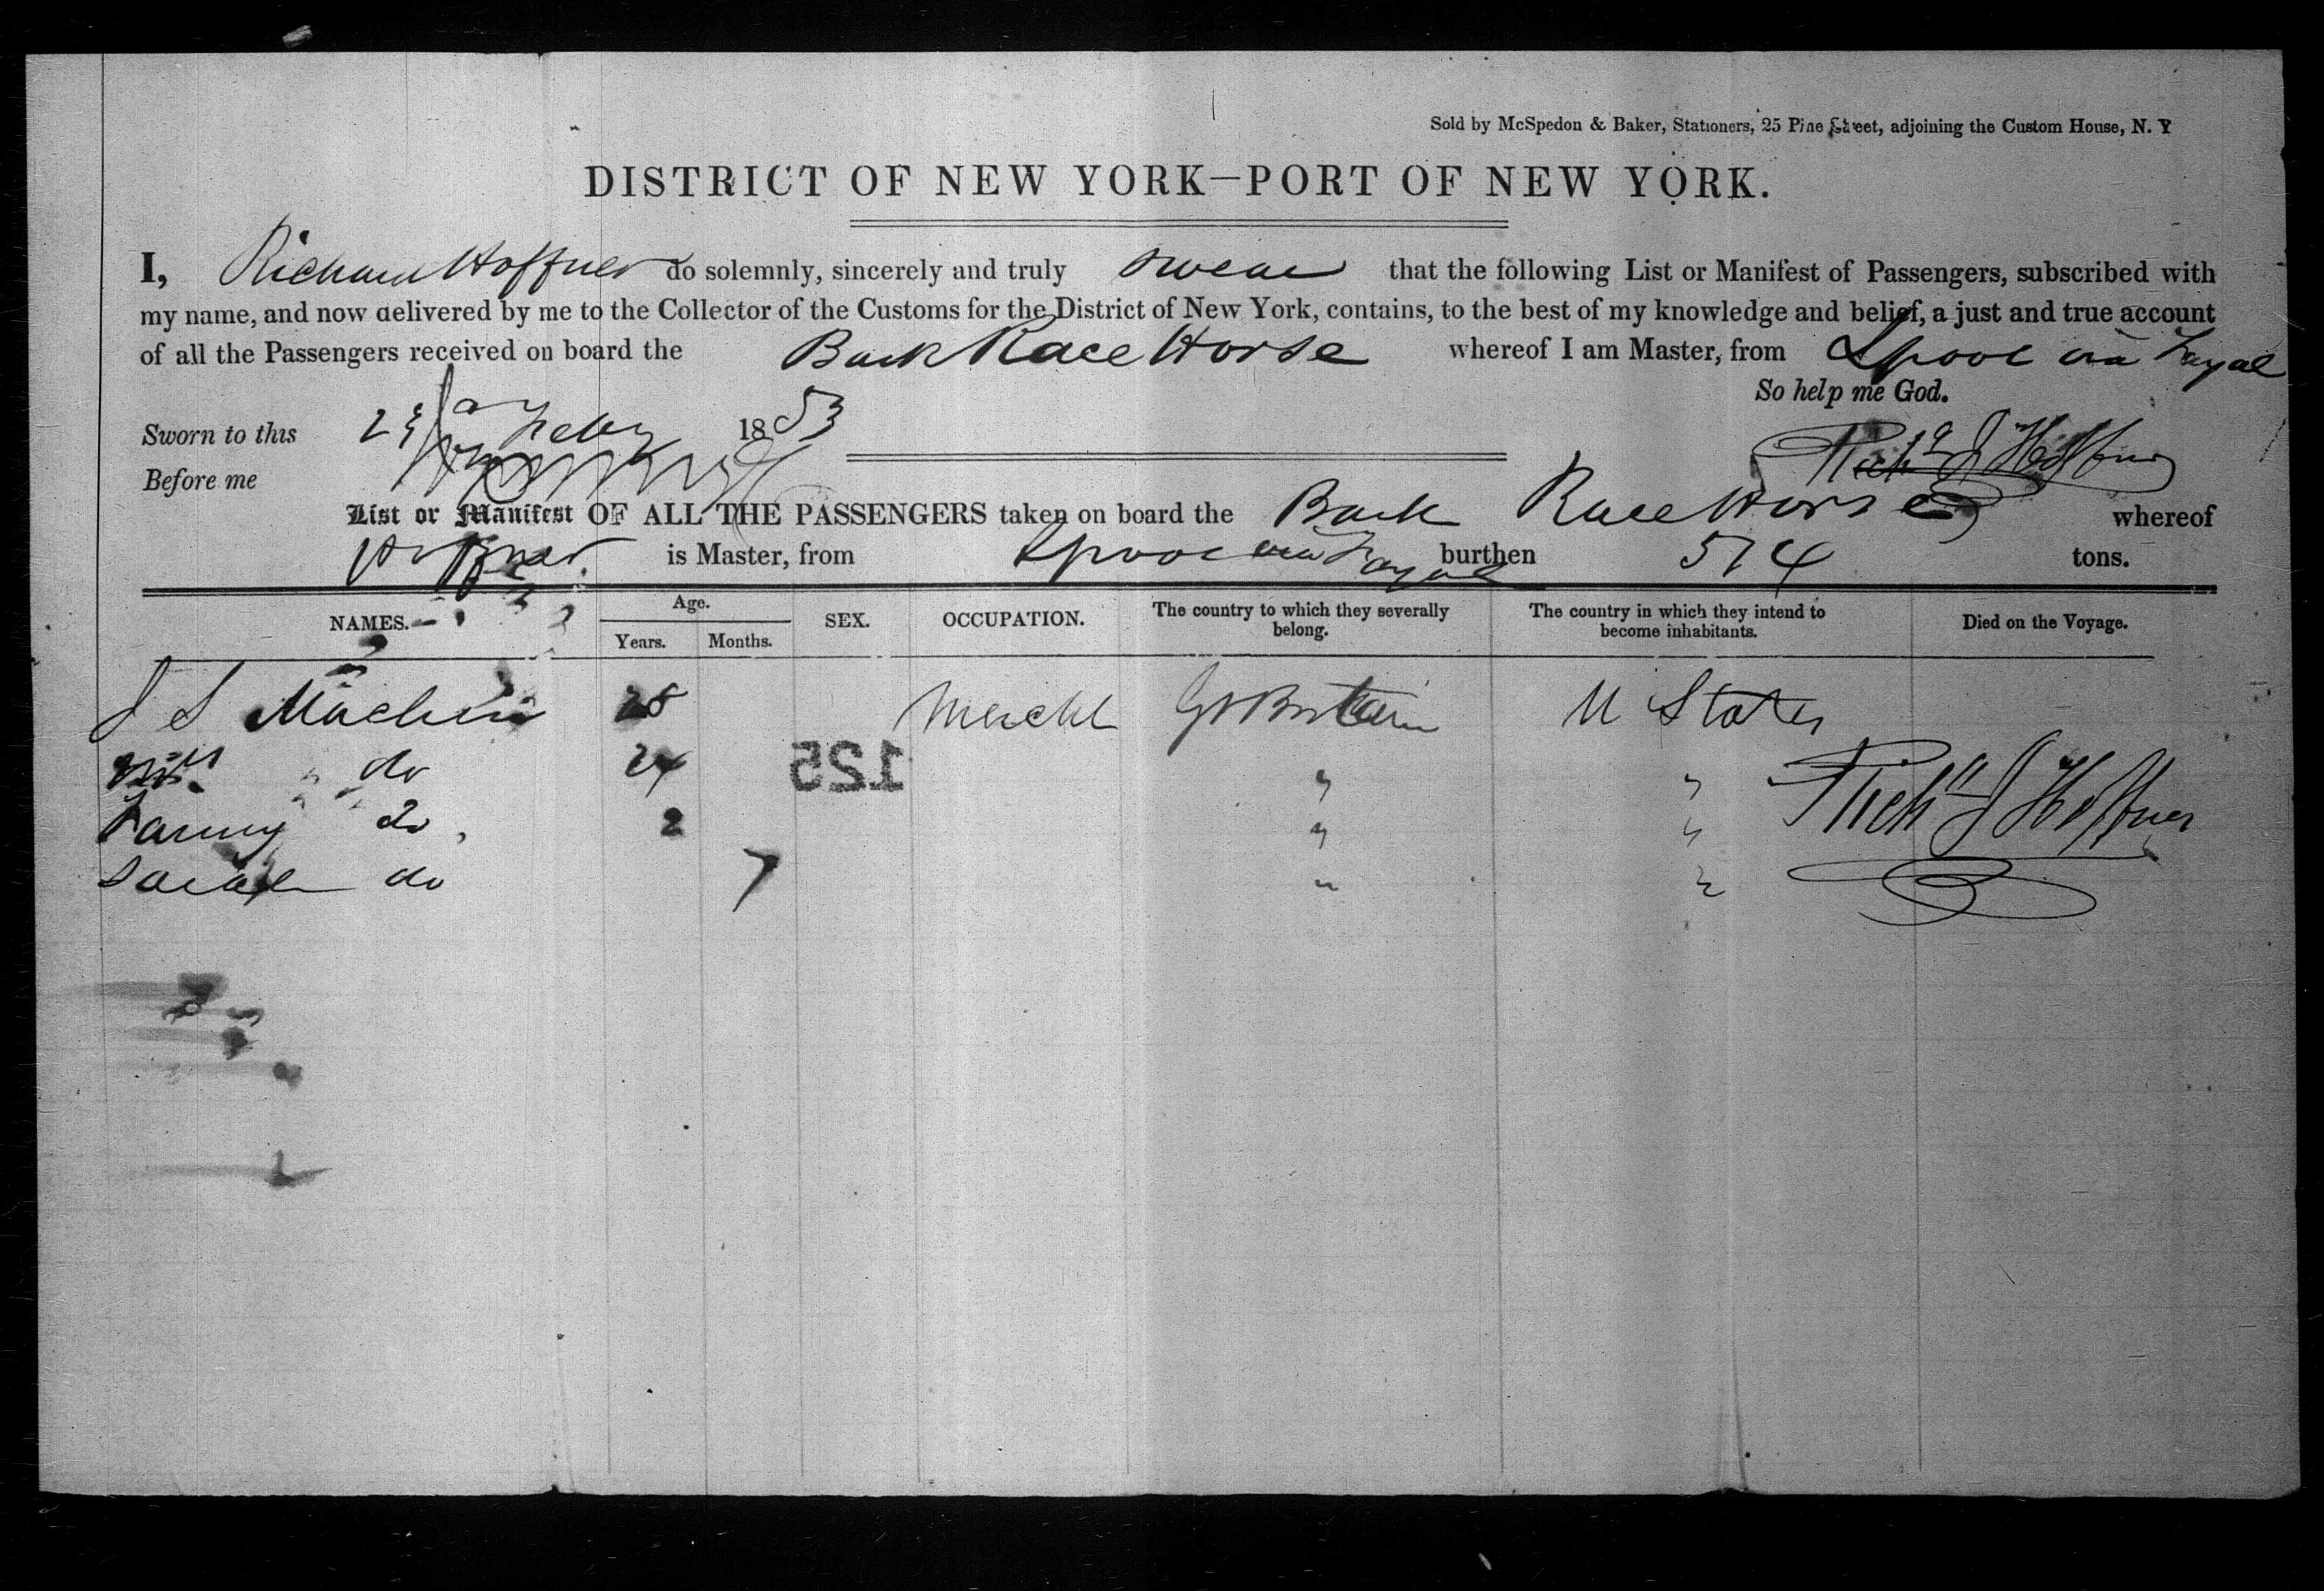 Sold by McSpedon & Baker, Stationers, 25 Pine Street, adjoining the Custom House, N. Y
DISTRICT OF NEW YORK—PORT OF NEW YORK.
I, Richard Hoffner do solemnly, sincerely and truly swear that the following List or Manifest of Passengers, subscribed with
my name, and now delivered by me to the Collector of the Customs for the District of New York, contains, to the best of my knowledge and belief, a just and true account
of all the Passengers received on board the Bark Race Horse whereof I am Master, from Lpool via Fayal
So help me God.
Sworn to this Feby 1853
Richd J Hoffner
Before me
List or Manifest OF ALL THE PASSENGERS taken on board the Bark Race Horse whereof
Hoffner is Master, from Lpool via Fayal burthen 514 tons.
NAMES. Age. SEX. OCCUPATION. The country to which they severally belong. The country in which they intend to become inhabitants. Died on the Voyage.
Years. Months.
J S Machin 28 Mercht Gt Britain U States
Mrs do 24 " "
Fanny do 2 " "
Sarah do 7 " "
125
Richd J Hoffner